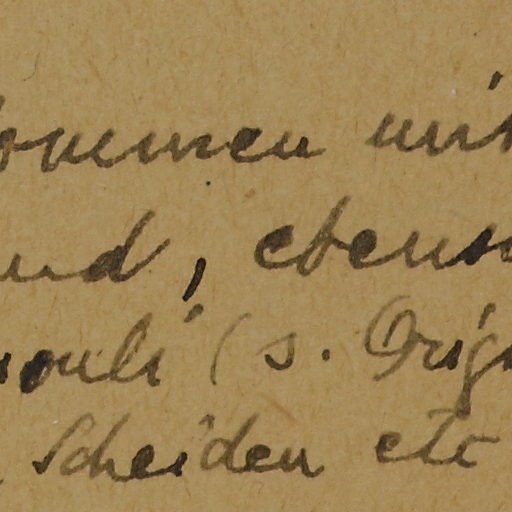 kommen mit
und, ebenso
nouli (s. Orig
Scheiden etc